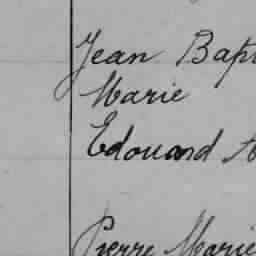 Jean Bap
Marie
Edouard
Pierre Marie